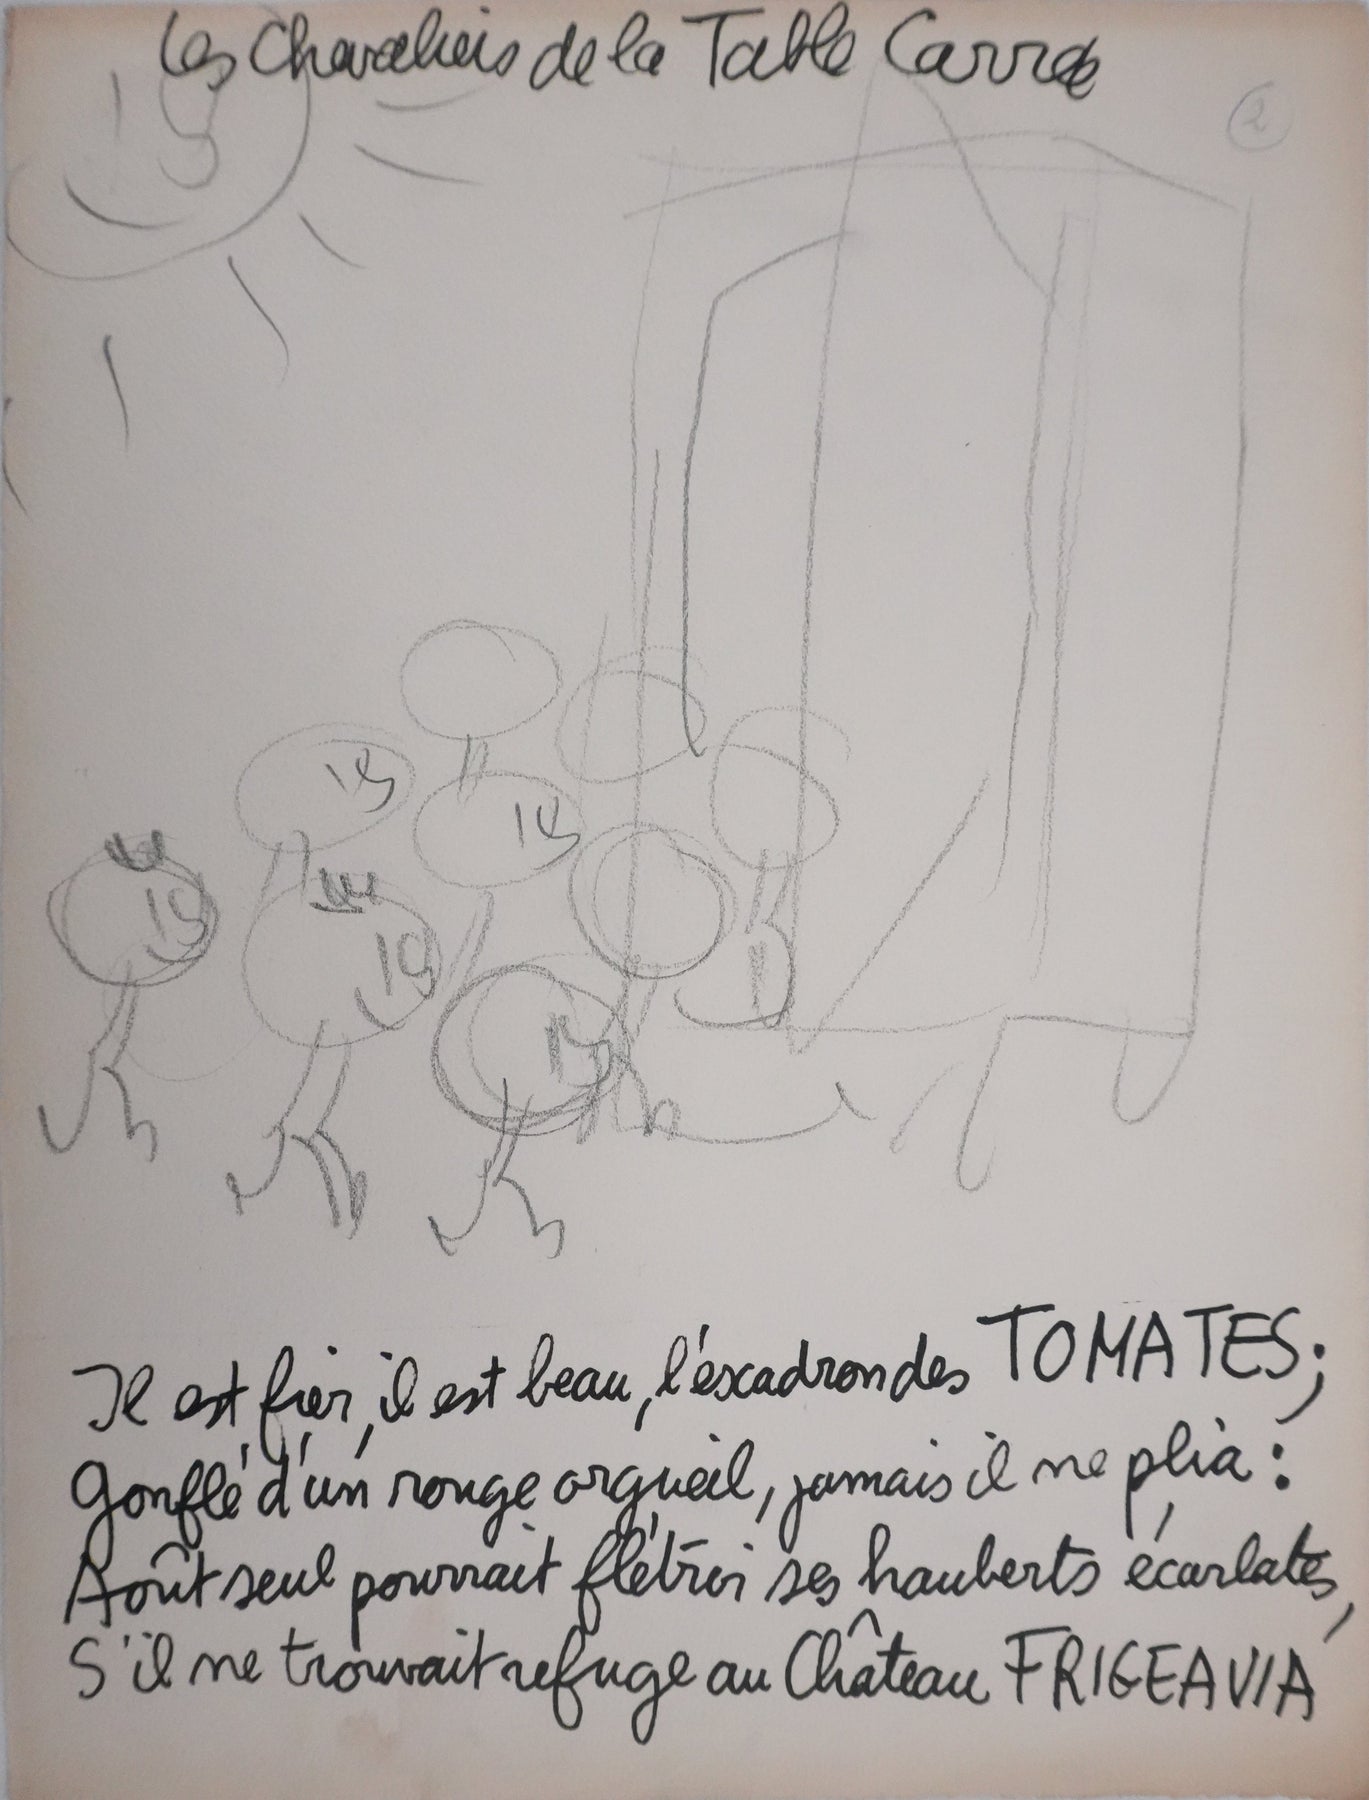 Les Chevaliers de la Table Carrée
2
Il est fier, il est beau, l'escadron des TOMATES;
Gonflé d'un rouge orgueil, jamais il ne plia:
Août seul pourrait flétrir ses hauberts écarlates,
S'il ne trouvait refuge au Château FRIGEAVIA